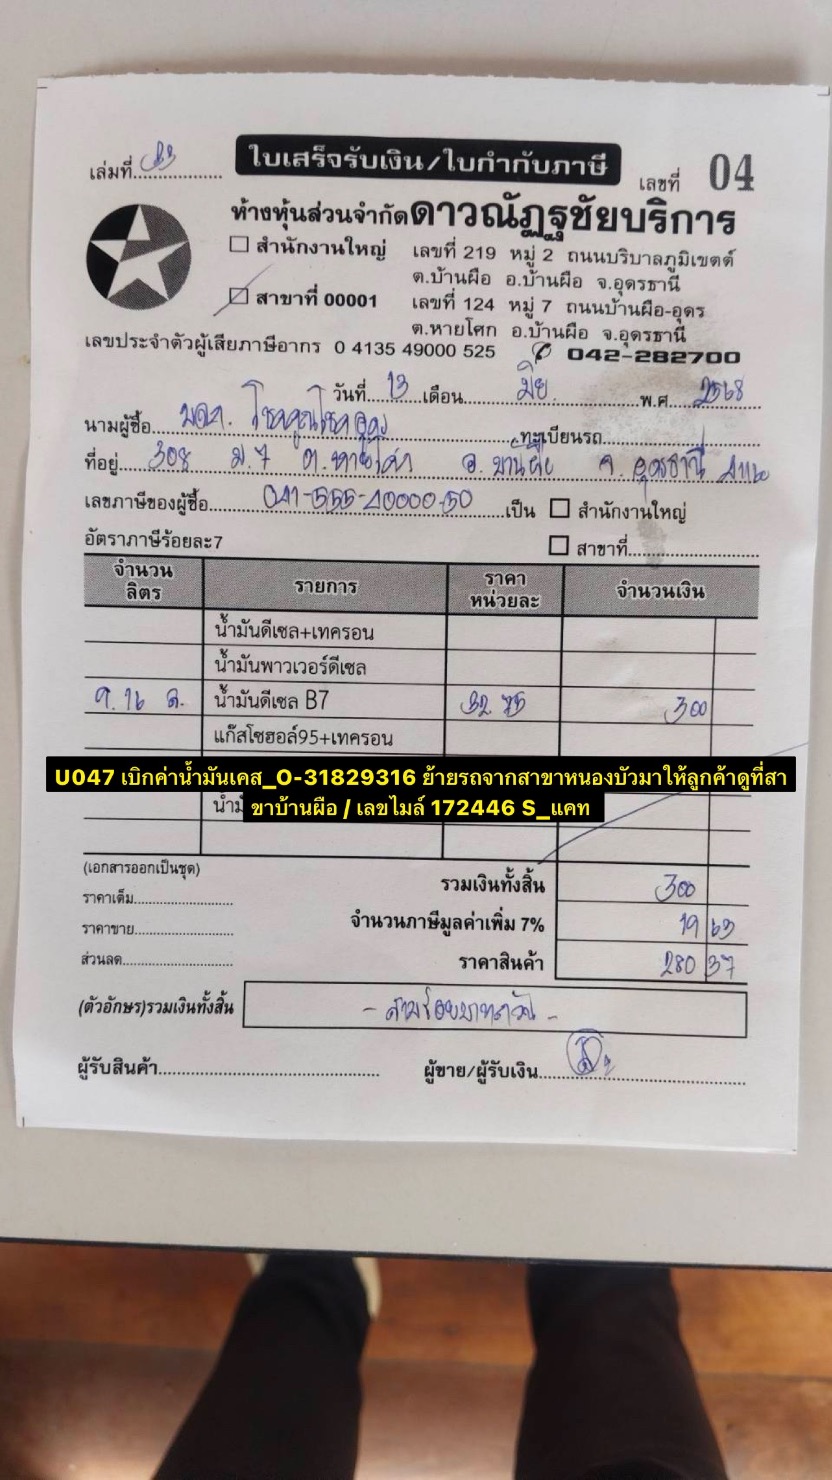 ใบเสร็จรับเงิน/ใบกำกับภาษี
เล่มที่
เลขที่ 04
ห้างหุ้นส่วนจำกัดดาวณัฏฐชัยบริการ
สำนักงานใหญ่ เลขที่ 219 หมู่ 2 ถนนบริบาลภูมิเขตต์
ต.บ้านผือ อ.บ้านผือ จ.อุดรธานี
สาขาที่ 00001 เลขที่ 124 หมู่ 7 ถนนบ้านผือ-อุดร
ต.หายโศก อ.บ้านผือ จ.อุดรธานี
เลขประจำตัวผู้เสียภาษีอากร 0 4135 49000 525 042-282700
วันที่ 13 เดือน มิย. พ.ศ. 2568
นามผู้ซื้อ ทะเบียนรถ
ที่อยู่ 308 ม.7 ต.หายโศก อ.บ้านผือ จ.อุดรธานี
เลขภาษีของผู้ซื้อ 041-555-40000-50 เป็น สำนักงานใหญ่
อัตราภาษีร้อยละ7 สาขาที่
จำนวนลิตร รายการ ราคาหน่วยละ จำนวนเงิน
น้ำมันดีเซล+เทครอน
น้ำมันพาวเวอร์ดีเซล
9.16 ล. น้ำมันดีเซล B7 32.75 300
แก๊สโซฮอล์95+เทครอน
U047 เบิกค่าน้ำมันเคส_O-31829316 ย้ายรถจากสาขาหนองบัวมาให้ลูกค้าดูที่สา
ขาบ้านผือ / เลขไมล์ 172446 S_แคท
(เอกสารออกเป็นชุด)
รวมเงินทั้งสิ้น 300
ราคาเต็ม
จำนวนภาษีมูลค่าเพิ่ม 7% 19 63
ราคาขาย
ส่วนลด
ราคาสินค้า 280 37
(ตัวอักษร)รวมเงินทั้งสิ้น - สามร้อยบาทถ้วน -
ผู้รับสินค้า ผู้ขาย/ผู้รับเงิน